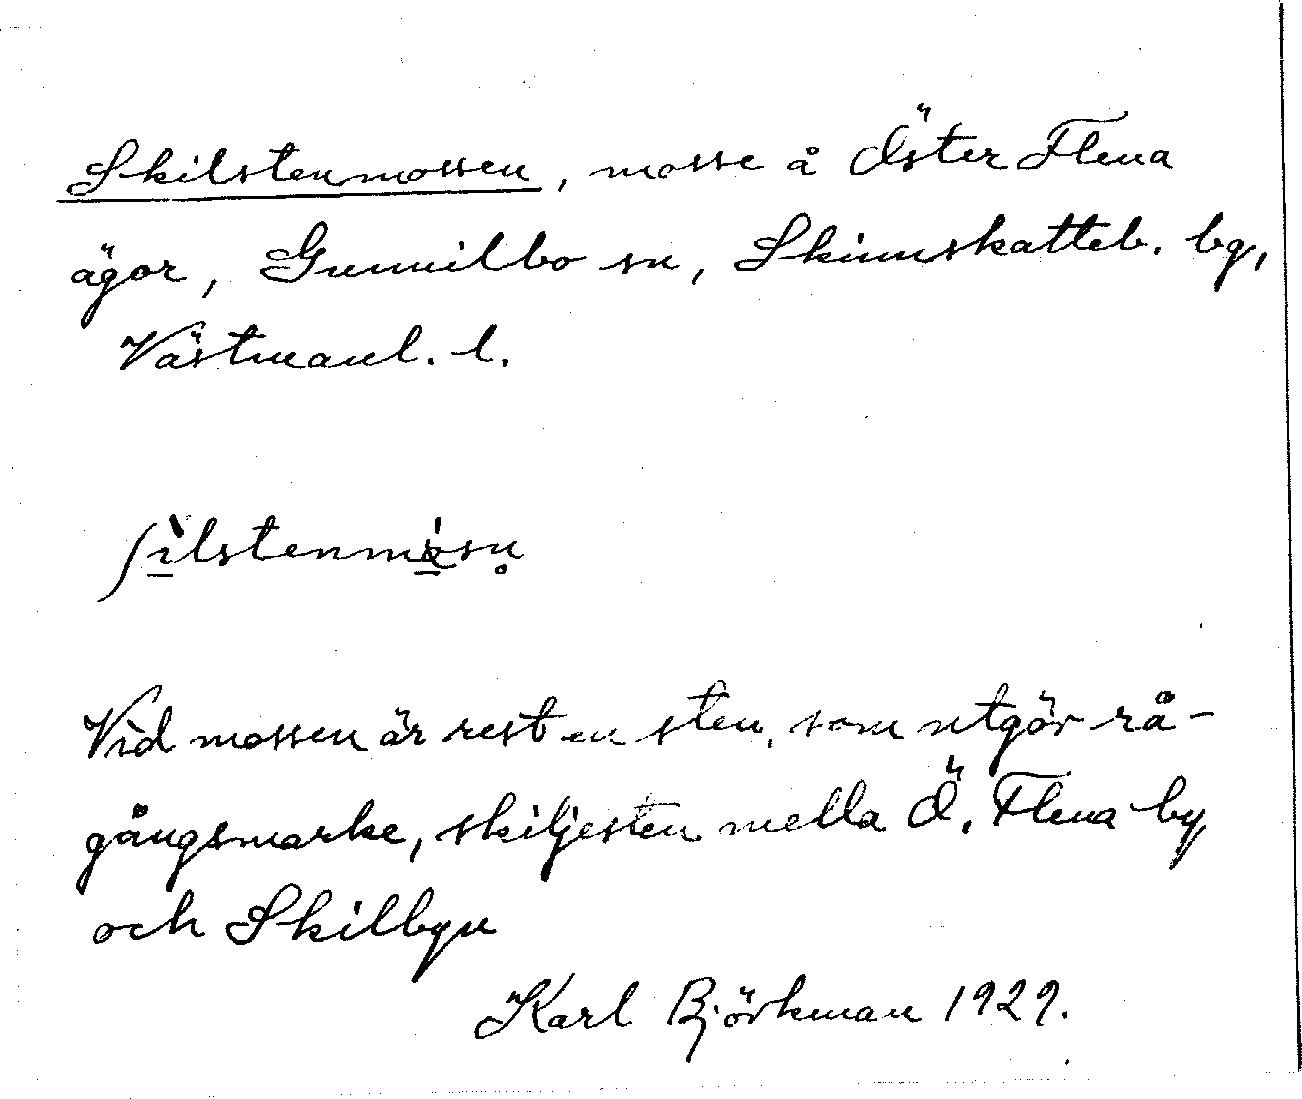 Skilstenmossen, mosse å Öster Flena
ägor, Gunnilbo sn, Skinnskatteb. bg,
Västmanl. l.
ʃı̱̀lstenmɷ̱́sn̥
Vid mossen är rest en sten, som utgör rå-
gångsmarke, skiljesten mella Ö. Flena by
och Skilbyn
Karl Björkman 1929.